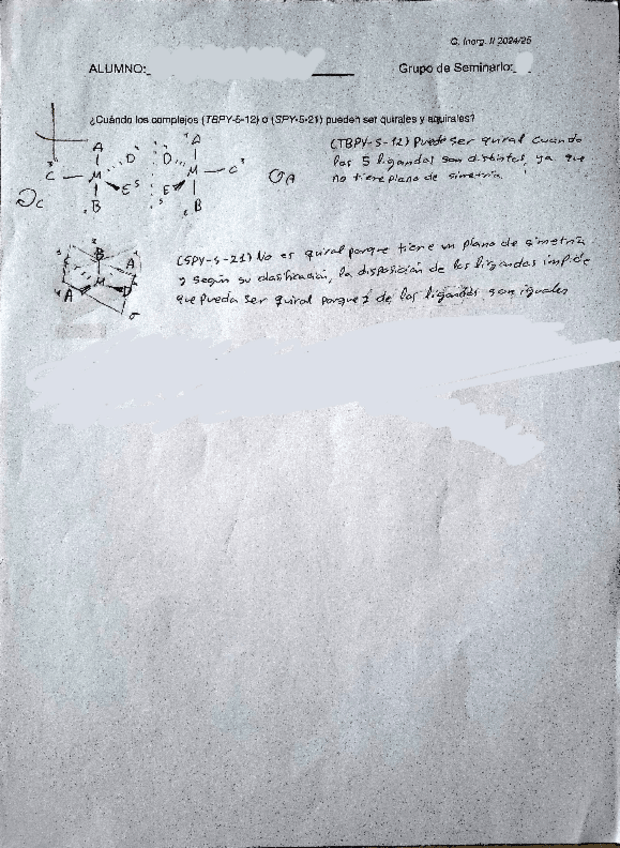 Q. Inorg. II 2024/25
ALUMNO:
Grupo de Seminario:
¿Cuándo los complejos (TBPY-5-12) o (SPY-5-21) pueden ser quirales y aquirales?
(TBPY-5-12) Puede ser quiral cuando
los 5 ligandos son distintos, ya que
no tiene plano de simetría.
A
D
C M
E
B
C
A
D
M C
E
B
A
(SPY-5-21) No es quiral porque tiene un plano de simetría
y según su clasificación, la disposición de los ligandos impide
que pueda ser quiral porque 2 de los ligandos son iguales
B
A
M
A D